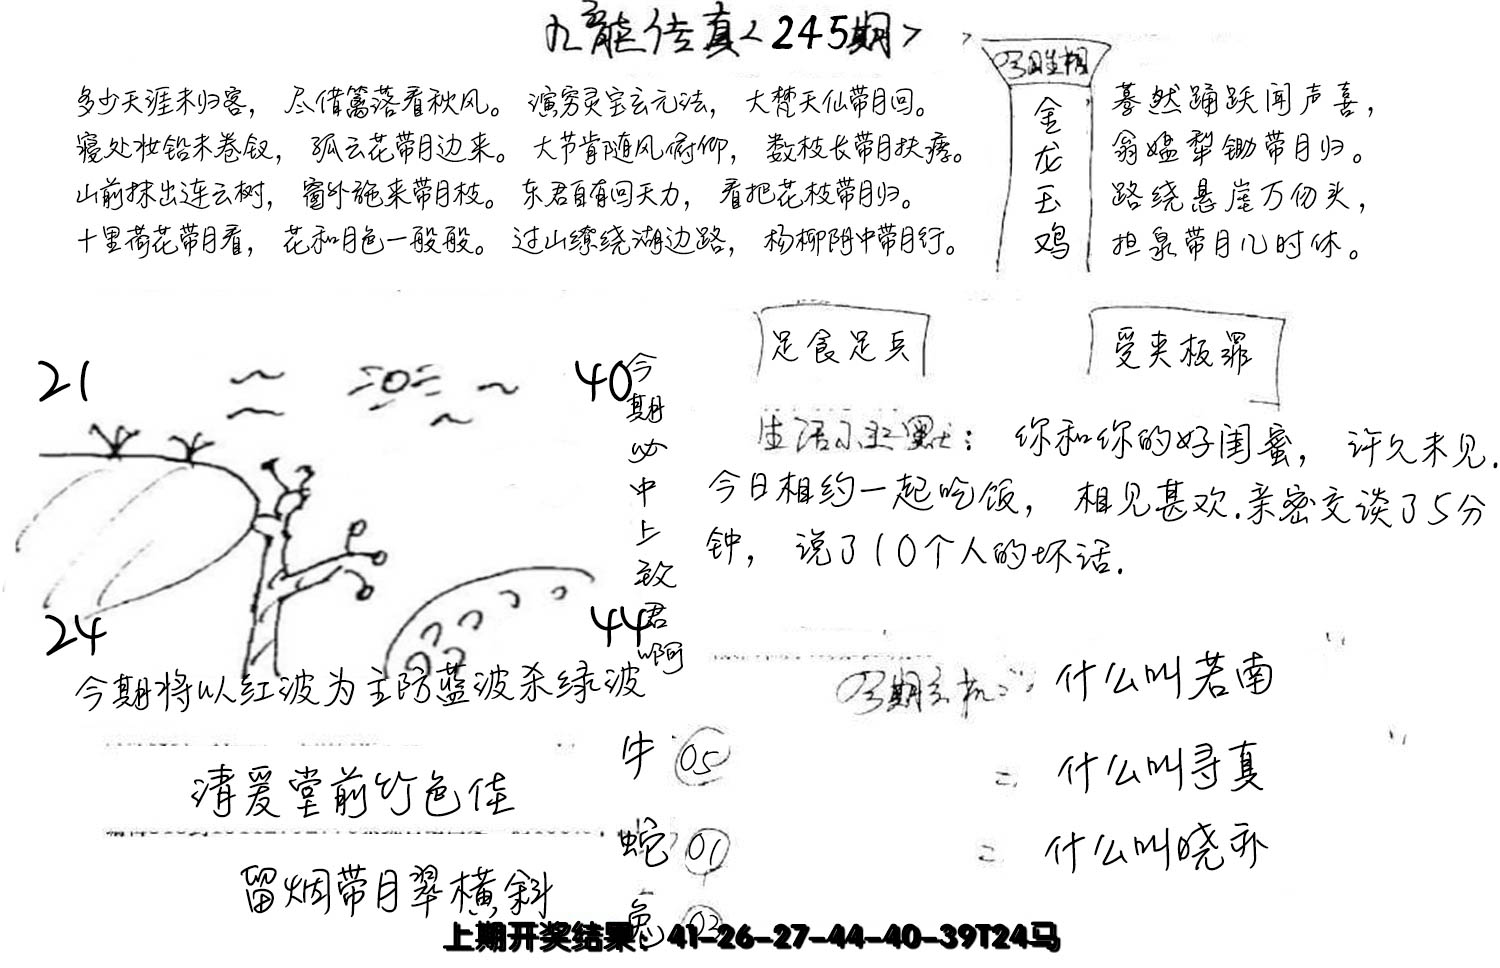 九龙传真<245期>
今期生相
金龙玉鸡
多少天涯未归客，尽借篱落看秋风。演穷灵宝玄元法，大梵天仙带月回。
寝处妆铅未卷钗，孤云花带月边来。大节肯随风俯仰，数枝长带月扶疏。
山前抹出连云树，窗外施来带月枝。东君自有回天力，看把花枝带月归。
十里荷花带月看，花和月色一般般。过山缭绕湖边路，杨柳阴中带月行。
蓦然踊跃闻声喜，
翁媪犁锄带月归。
路绕悬崖万仞头，
担泉带月几时休。
21
40
24
44
今期必中上致君啊
今期将以红波为主防蓝波杀绿波
足食足兵
受夹板罪
生活小幽默：你和你的好闺蜜，许久未见.
今日相约一起吃饭，相见甚欢.亲密交谈了5分
钟，说了10个人的坏话.
今期玄机：什么叫若南
二 什么叫寻真
二 什么叫晓亦
清爱堂前竹色佳
留烟带月翠横斜
牛 05
蛇 01
兔 03
上期开奖结果：41-26-27-44-40-39T24马